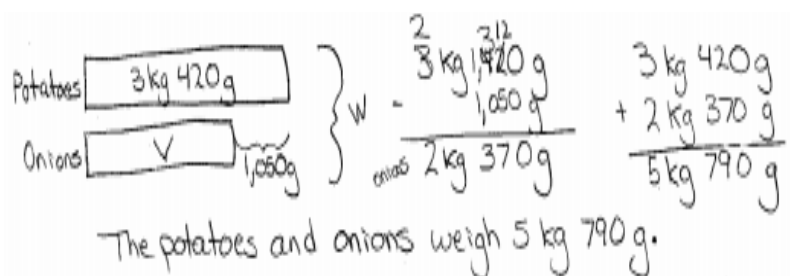 Potatoes 3kg 420g
Onions V 1,050g
W
2 312
3 kg 1,420 g
- 1,050 g
onions 2 kg 370g
3 kg 420g
+ 2 kg 370 g
5 kg 790 g
The potatoes and onions weigh 5 kg 790g.